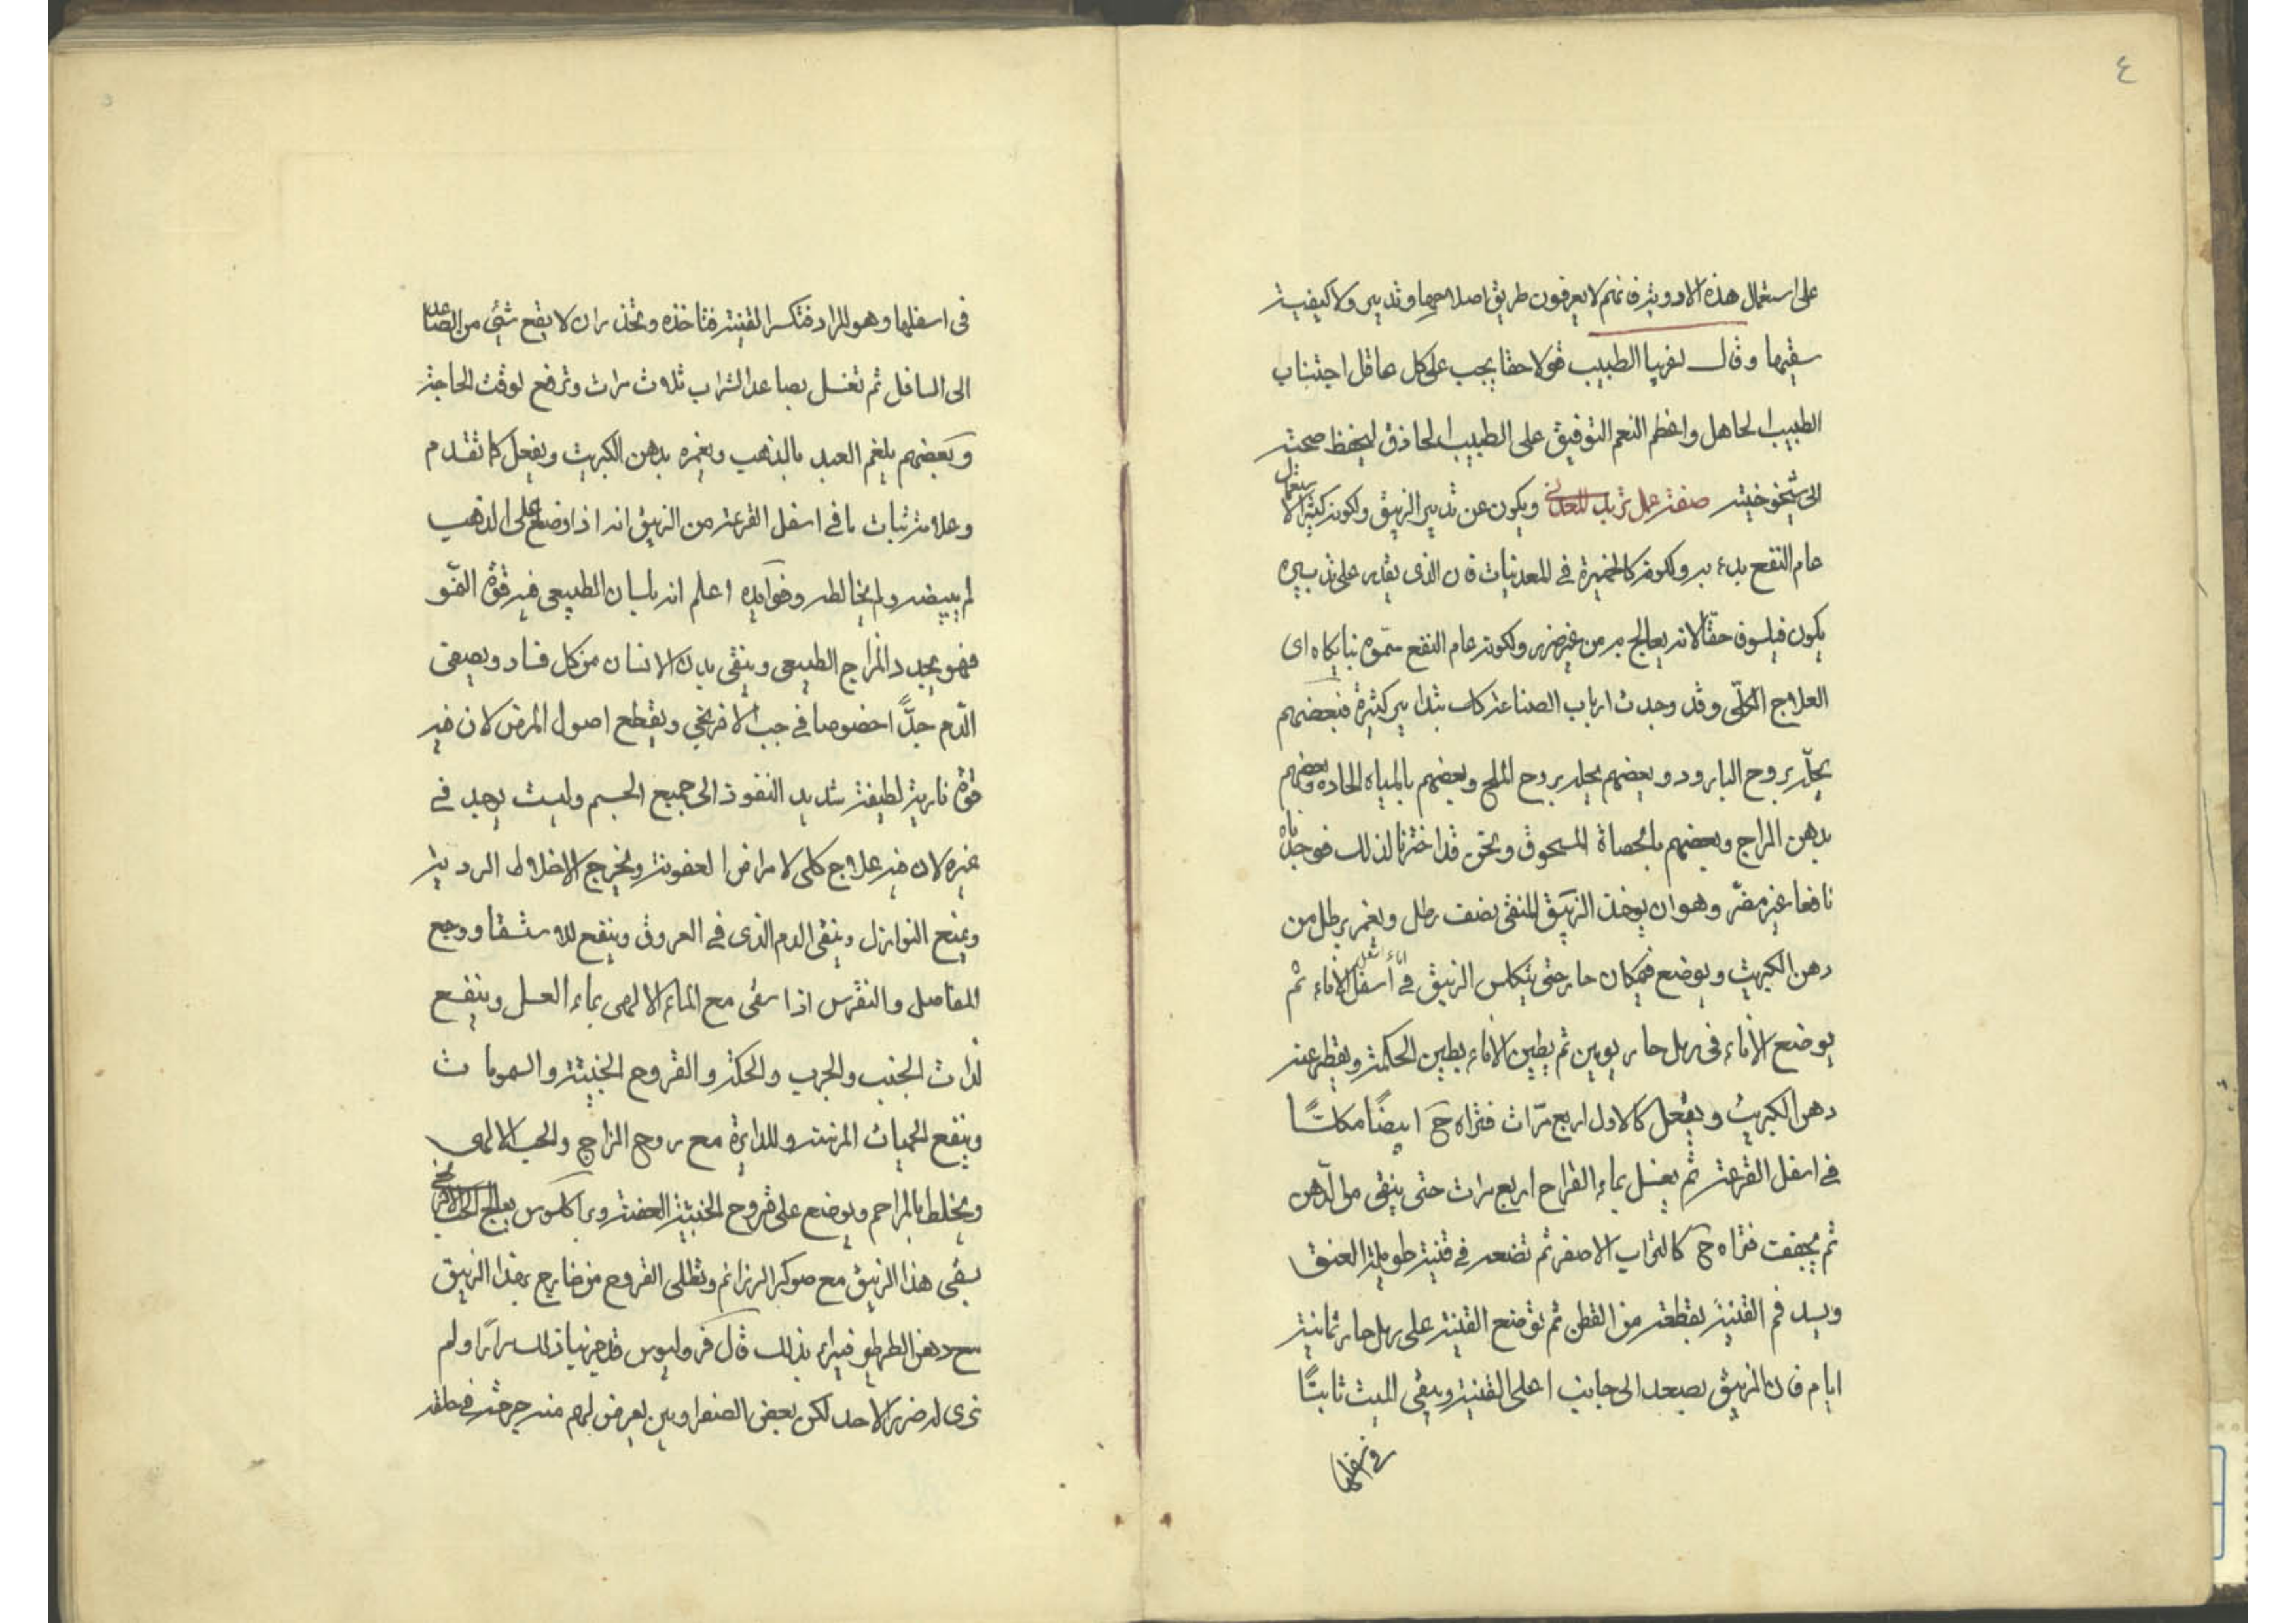 ٤
على استعمال هذه الادوية فانهم لا يعرفون طريق اصلاحها وتدبير ولا كيفية
سقيها وقال الطبيب قولا حقا يجب على كل عاقل اجتناب
الطبيب الجاهل واعظم النعم التوفيق على الطبيب الحاذق ليحفظ صحته
الى شيخوخيته صفة عمل تربد المعدني ويكون عن تدبير الزيبق ولكونه كثير الاستعمال
عام النفع بدء به ولكونه كالخميرة في المعدنيات فان الذى يقدر على تدبيره
يكون فيلسوف حقا لانه يعالج به من غير ضرر ولكونه عام النفع سمّوه اى
العلاج الكلّى وقد وجدت ارباب الصناعة كلس بتدابير كثيرة فبعضهم
يحلّه بروح البارود وبعضهم يحله بروح الملح وبعضهم بالمياه الحاده وبعضهم
بدهن الزاج وبعضهم بالحصاة المسحوق ونحن قد اخترنا لذلك فوجدناه
نافعا غير مضرّ وهو ان يوخذ الزيبق المنقى نصف رطل ويغمر برطل من
دهن الكبريت ويوضع فى مكان حار حتى يتكلس الزيبق فى اسفل الاناء ثم
يوضع الاناء فى رمل حار يومين ثم يطين الاناء بطين الحكمة ويقطر عنه
دهن الكبريت ويفعل كالاول اربع مرّات فتراه ح ابيضًا مكلسًا
فى اسفل القرعة ثم يغسل بماء القراح اربع مرات حتى ينقى من الدّهن
ثم يجفف فتراه ح كالتراب الاصفر ثم تضعه فى قنينة طويلة العنق
ويسد فم القنينة بقطعة من القطن ثم توضع القنينة على رمل حار ثمانية
ايام فان الزيبق يصعد الى جانب اعلى القنينة ويبقى الميت ثابتًا
فى اسفلها
فى اسفلها وهو المراد فتكسر القنينة فتاخذه وتحذر ان لا يقع شئ من الصاعد
الى السافل ثم تغسل بصاعد الشراب ثلاث مرات وترفع لوقت الحاجة
وبعضهم يلغم العبد بالذهب ويغمره بدهن الكبريت ويفعل كما تقدم
وعلامة ثبات ما فى اسفل القرعة من الزيبق انه اذا وضع على الذهب
لم يبيضه ولم يخالطه وفوايده اعلم ان بلسان الطبيعى فيه قوّة النموّ
فهو يجدد المزاج الطبيعى وينقى بدن الانسان من كل فساد ويصفى
الدّم جدًّا خصوصا فى حب الافرنجى ويقطع اصول المرض لان فيه
قوة نارية لطيفة شديد النفوذ الى جميع الجسم وليست توجد فى
غيره لان فيه علاج كلى لامراض العفونة ويخرج الاخلاط الردية
ويمنع النوازل وينقى الدم الذى فى العروق وينفع للاستسقا ووجع
المفاصل والنقرس اذا سقى مع الماء الالهى بماء العسل وينفع
لذات الجنب والجرب والحكة والقروح الخبيثة والسموما ت
وينفع الحميات المزمنة والدايرة مع روح الزاج والحب الالهى
ويخلط بالمراحم ويوضع على قروح الخبيثة العفنة وبراكلسوس يعالج الحب الافرنجى
بسقى هذا الزيبق مع ويطلى القروح من خارج بهذا الزيبق
مع دهن الطرطير فيبراء بذلك قال قروليوس قد جربنا ذلك مرارًا ولم
نرى له ضرر لاحد لكن بعض الصفراويين يعرض لهم منه حرحة فى حلقه